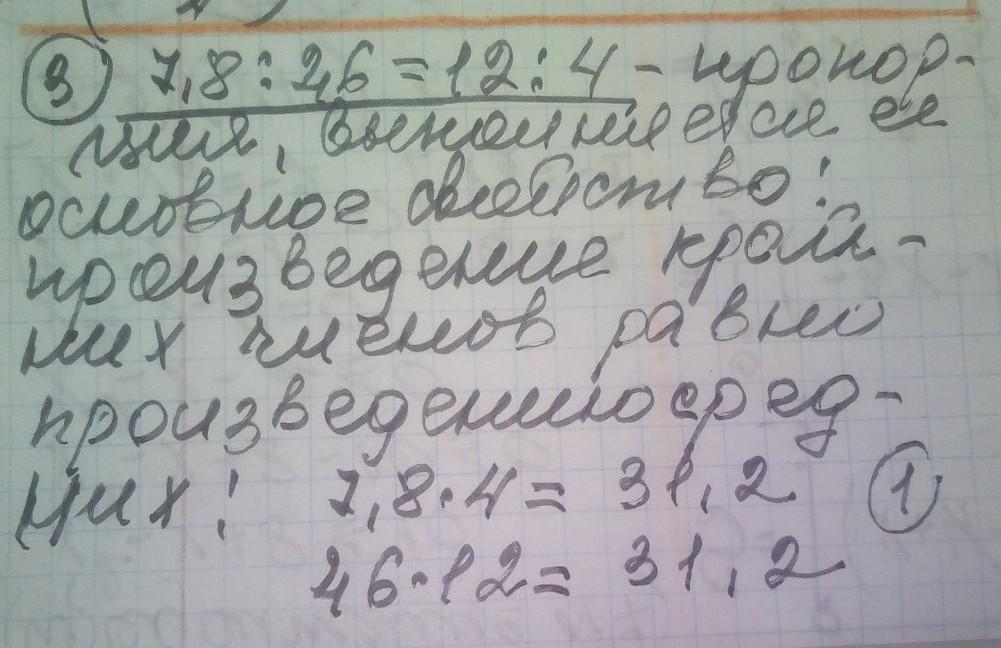 3) 7,8 : 2,6 = 12 : 4 - пропор-
ция, выполняется ее
основное свойство:
произведение край-
них членов равно
произведению сред-
них: 7,8·4 = 31,2 1
2,6·12 = 31,2